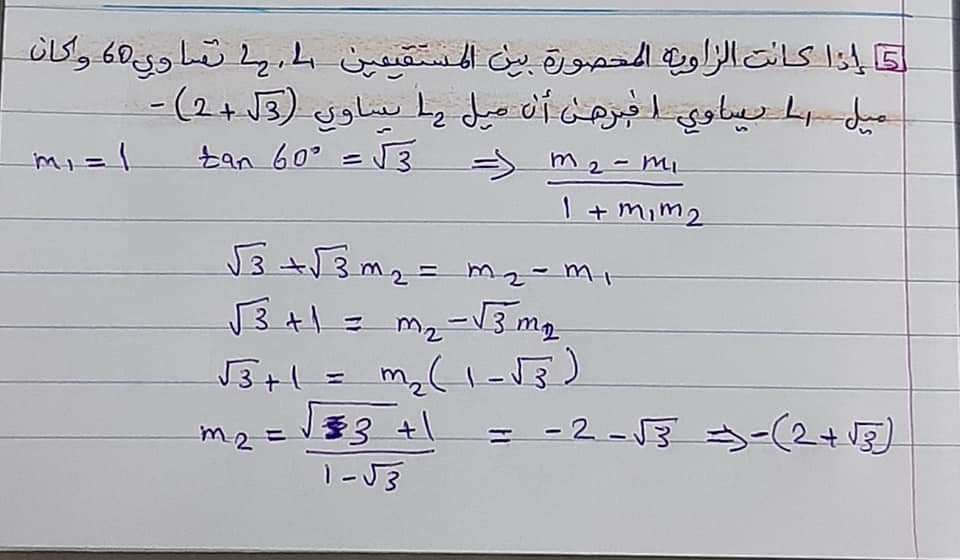 5 إذا كانت الزاوية المحصورة بين المستقيمين L₁، L₂ تساوي 60 وكان
ميل L₁ يساوي 1 فبرهن أن ميل L₂ يساوي -(2+√3)
m₁ = 1 tan 60° = √3 ⇒ (m₂ - m₁)/(1 + m₁m₂)
√3 + √3 m₂ = m₂ - m₁
√3 + 1 = m₂ - √3 m₂
√3 + 1 = m₂(1 - √3)
m₂ = (√3 + 1)/(1 - √3) = -2 - √3 ⇒ -(2 + √3)